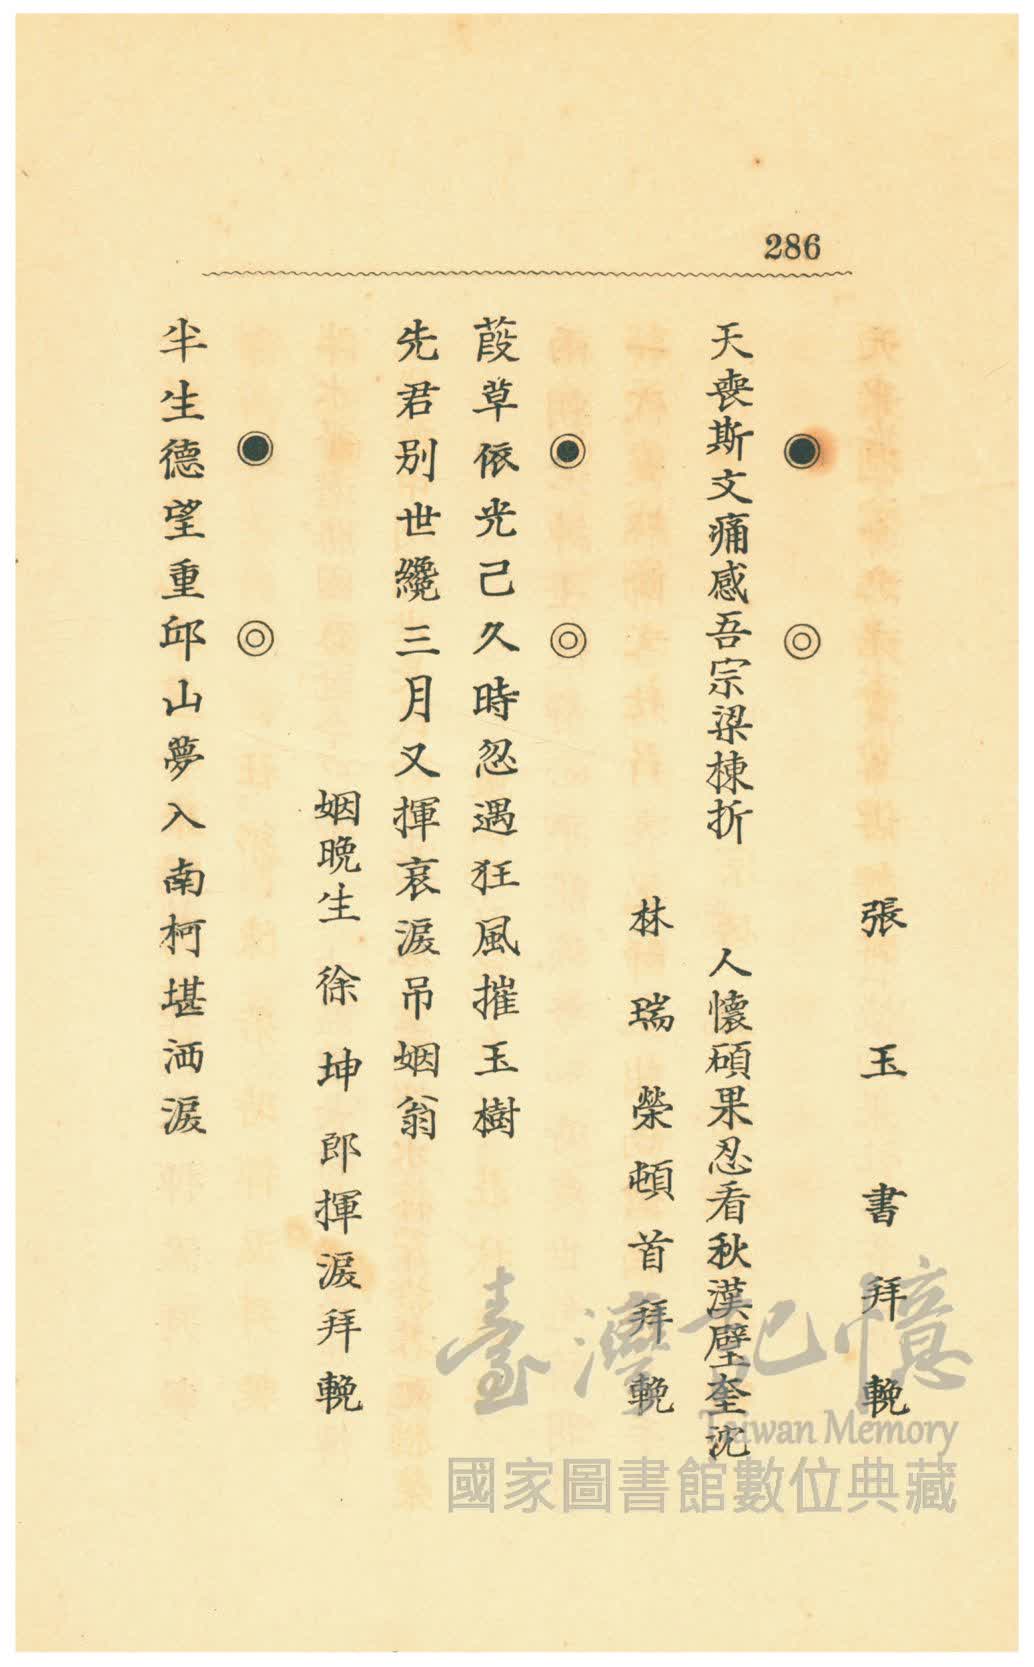 286
張玉書拜輓
天喪斯文痛感吾宗梁棟折　人懷碩果忍看秋漢壁奎沈
林瑞榮頓首拜輓
葭草依光己久時忽遇狂風摧玉樹
先君別世纔三月又揮哀淚吊姻翁
姻晚生　徐坤郎揮淚拜輓
半生德望重邱山夢入南柯堪洒淚
臺灣記憶
Taiwan Memory
國家圖書館數位典藏